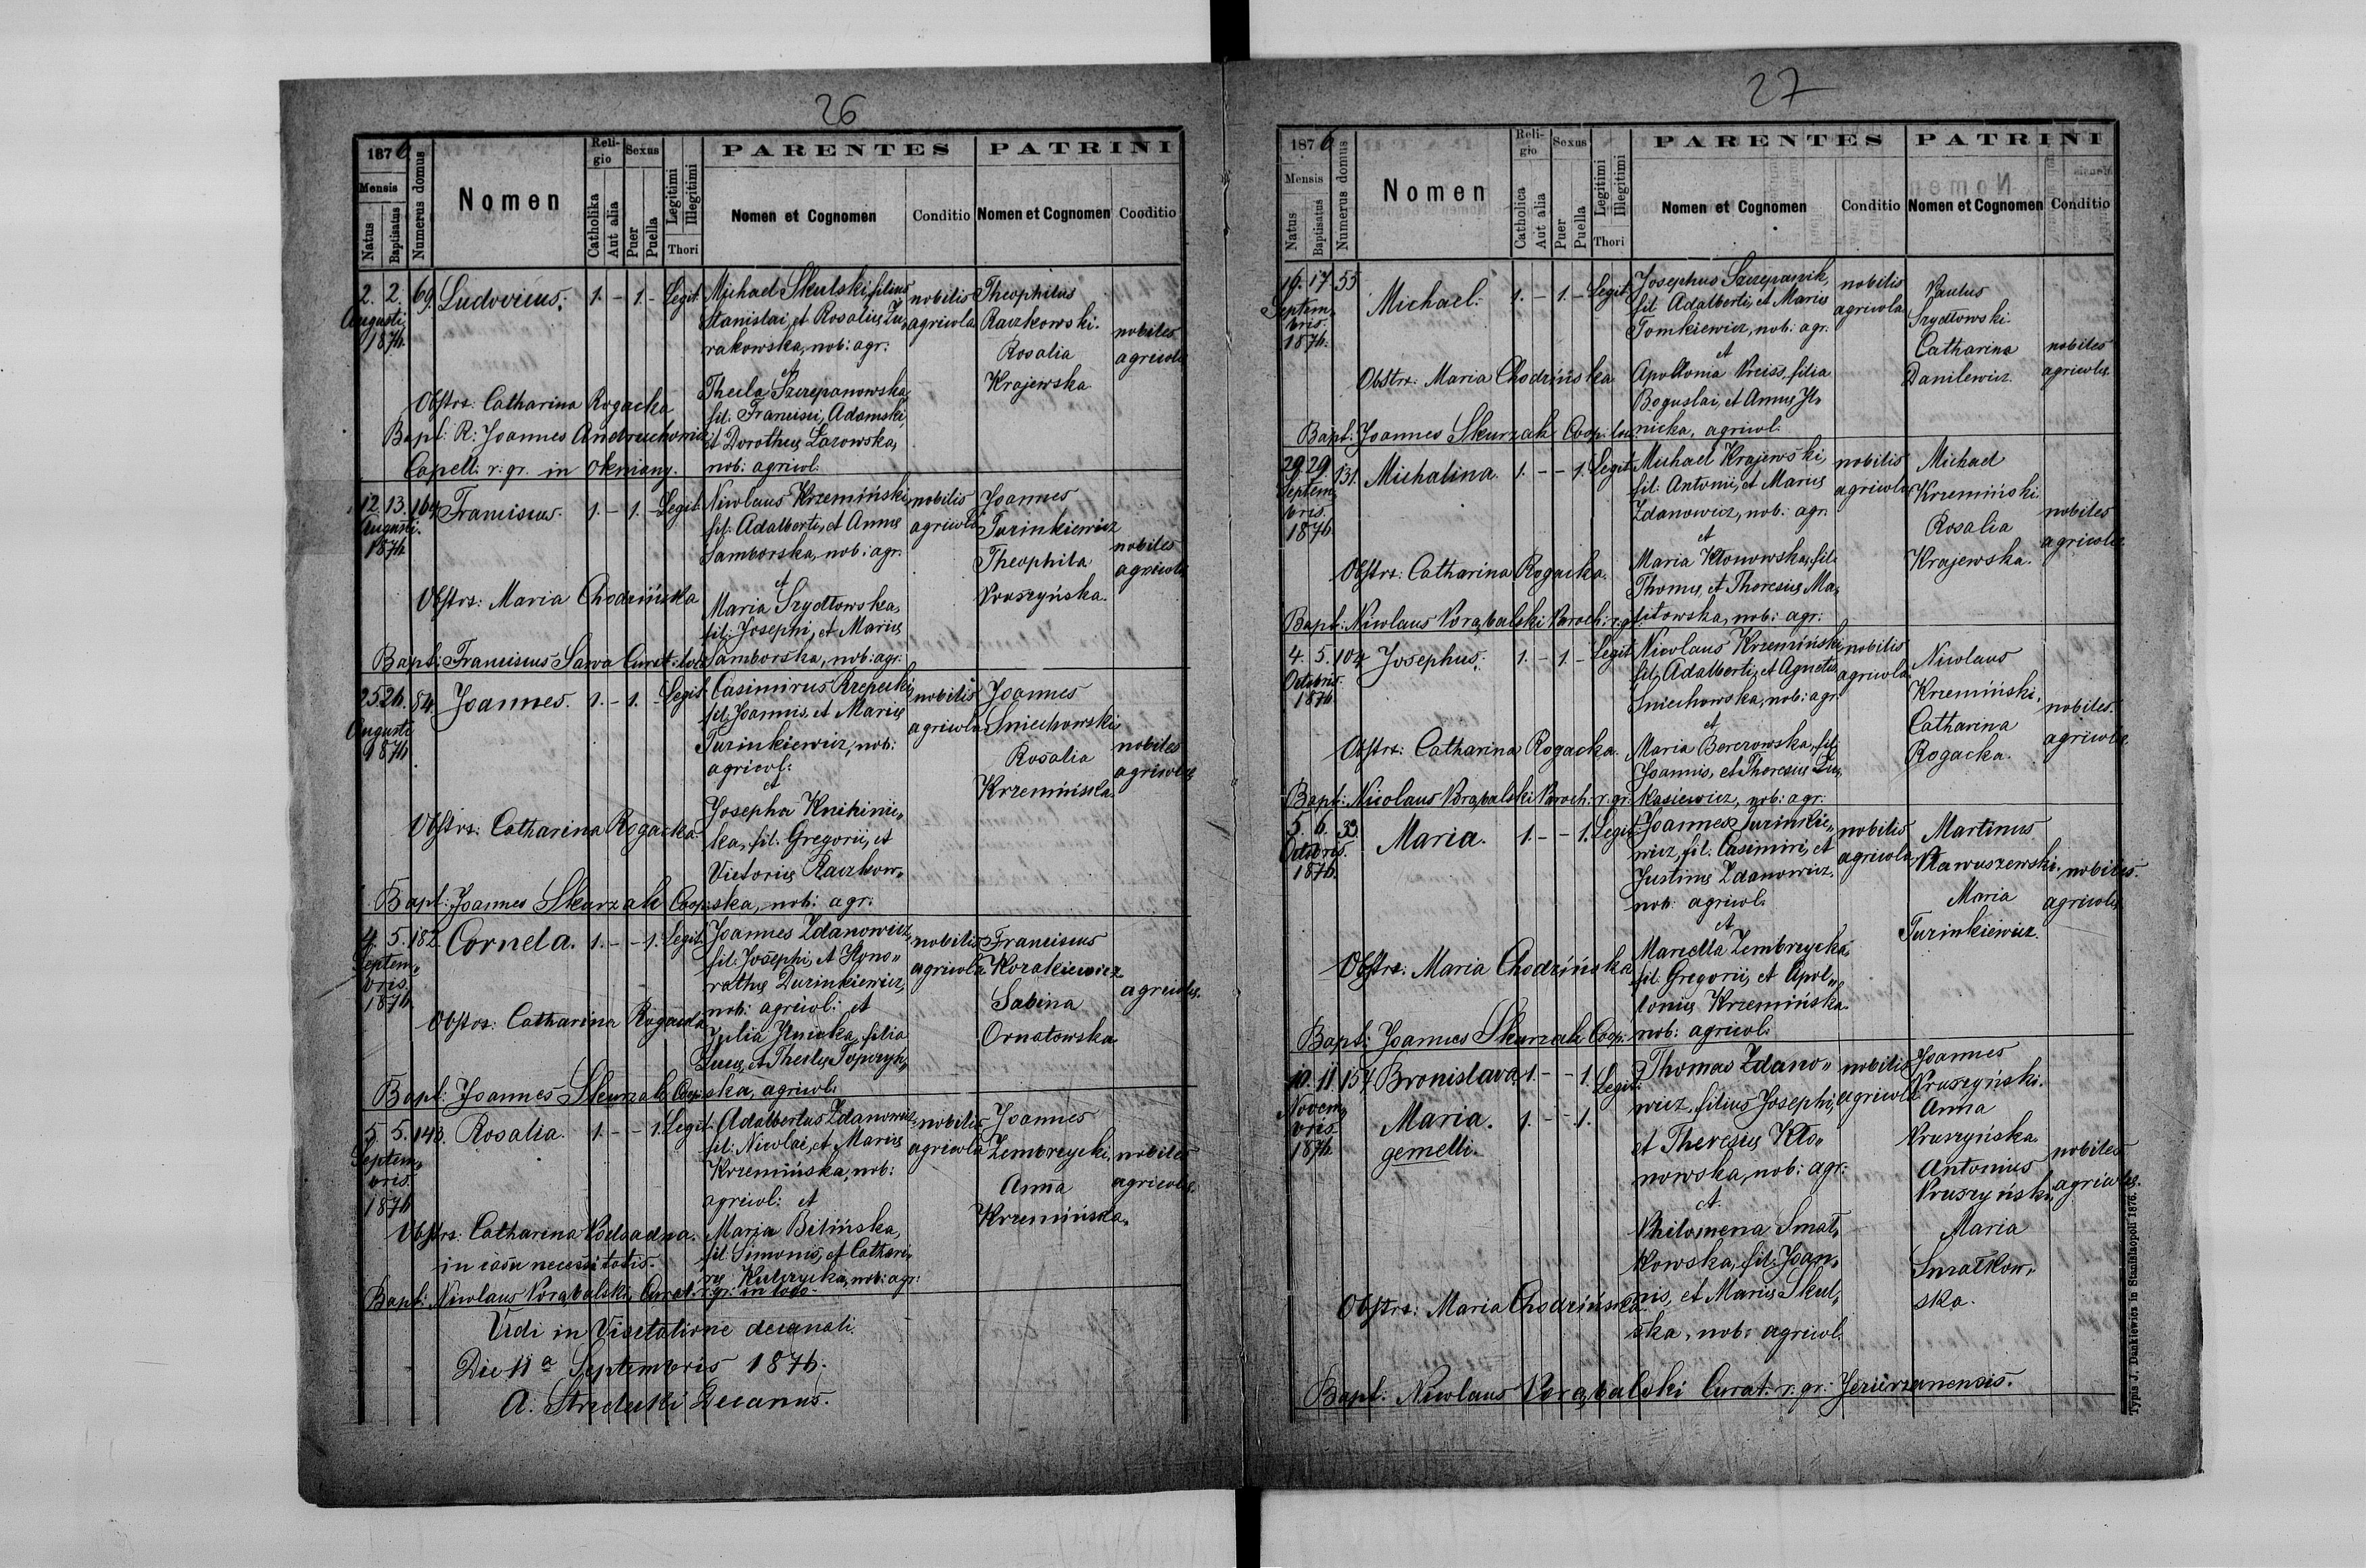 26
1876
Mensis
Natus
Baptisatus
Numerus domus
Nomen
Religio
Catholika
Aut alia
Sexus
Puer
Puella
Legitimi
Illegitimi
Thori
PARENTES
Nomen et Cognomen
Conditio
PATRINI
Nomen et Cognomen
Cooditio
2. 2. 69. Ludovicus. 1. - 1. - Legit.
Augusti
1876.
Michael Skulski, filius
Stanislai, et Rosaliæ Żu„
rakowska, nob: agr:
et
Thecla Szczepanowska,
fil: Francisci, Adamski,
et Dorotheæ Łazowska,
nob: agricol:
nobilis
agricola
Theophilus
Raczkowski.
Rosalia
Krajewska
nobiles
agricolæ
Obstrx: Catharina Rogacka
Bapt: R: Joannes Andruchowicz
Capell: r: gr: in Okniany.
12. 13. 164. Franciscus. 1. - 1. - Legit.
Augusti.
1876
Nicolaus Krzemiński,
fil: Adalberti, et Annæ
Samborska, nob: agr:
et
Maria Szydłowska,
fil: Josephi, et Mariæ
Samborska, nob: agr:
nobilis
agricola
Joannes
Turinkiewicz
Theophila
Pruszyńska.
nobiles
agricolæ
Obstrx: Maria Chodzińska
Bapt: Franciscus Sawa Curat: loci
25. 26. 84. Joannes. 1. - 1. - Legit.
Augusti
1876
Casimirus Rzepecki,
fil: Joannis, et Mariæ
Turinkiewicz, nob:
agricol:
et
Josepha Knihinic„
ka, fil: Gregorii, et
Victoriæ Raczkow„
ska, nob: agr:
nobilis
agricola
Joannes
Sniechowski,
Rosalia
Krzemińska.
nobiles
agricolæ
Obstrx: Catharina Rogacka
Bapt: Joannes Skurzak Coop:
4. 5. 182 Cornela. 1. - - 1. Legit.
Septem„
bris.
1876
Joannes Zdanowicz,
fil: Josephi, et Hono„
rathæ Durinkiewicz,
nob: agricol: et
Julia Ilnicka, filia
Lucæ, et Theclæ Topczyń„
ska, agricol:
nobilis
agricola
Franciscus
Kozakiewicz
Sabina
Ornatowska
agricolæ.
Obstrx: Catharina Rogacka
Bapt: Joannes Skurzak Coop:
5. 5. 143. Rosalia. 1. - - 1. Legit.
Septem„
bris.
1876
Adalbertus Zdanowicz,
fil: Nicolai, et Mariæ
Krzemińska, nob:
agricol: et
Maria Bilińska,
fil: Simonis, et Cathari„
næ Kulczycka, nob: agr:
nobilis
agricola
Joannes
Zembrzycki,
Anna
Krzemińska.
nobiles
agricolæ.
Obstrx: Catharina Podsadna.
in casu necessitatis.
Bapt: Nicolaus Porąbalski, Curat: r: gr: in loco.
Vidi in Visitatione decanali.
Die 11ª Septembris 1876.
Decanus.
27
1876
Mensis
Natus
Baptisatus
Numerus domus
Nomen
Religio
Catholica
Aut alia
Sexus
Puer
Puella
Legitimi
Illegitimi
Thori
PARENTES
Nomen et Cognomen
Conditio
PATRINI
Nomen et Cognomen
Conditio
16. 17 55 Michael. 1. - 1. - Legit:
Septem„
bris.
1876.
Josephus Szczepanik,
fil: Adalberti, et Mariæ
Tomkiewicz, nob: agr:
et
Apollonia Preiss, filia
Boguslai, et Annæ Il„
nicka, agricol:
nobilis
agricola
Paulus
Szydłowski.
Catharina
Danilewicz.
nobiles
agricolæ.
Obstrx: Maria Chodzińska
Bapt: Joannes Skurzak Coop: loci
29. 29 131. Michalina. 1. - - 1. Legit:
Septem„
bris.
1876
Michael Krajewski,
fil: Antonii, et Mariæ
Zdanowicz, nob: agr:
et
Maria Kłonowska, fil:
Thomæ, et Theresiæ Ma„
siłowska, nob: agr:
nobilis
agricola
Michael
Krzemiński.
Rosalia
Krajewska.
nobiles
agricolæ.
Obstrx: Catharina Rogacka.
Bapt: Nicolaus Porąbalski Paroch: r: gr:
4. 5. 104 Josephus. 1. - 1. - Legit:
Octobris.
1876
Nicolaus Krzemiński,
fil: Adalberti, et Agnetis
Sniechowska, nob: agr:
et
Maria Berezowska, fil:
Joannis, et Theresiæ Łu„
kasiewicz, nob: agr:
nobilis
agricola
Nicolaus
Krzemiński.
Catharina
Rogacka.
nobiles.
agricolæ.
Obstrx: Catharina Rogacka.
Bapt: Nicolaus Porąbalski Paroch: r: gr:
5. 6. 33. Maria. 1. - - 1. Legit:
Octobris.
1876.
Joannes Turinkie„
wicz, fil: Casimiri, et
Justinæ Zdanowicz,
nob: agricol:
et
Marcella Zembrzycka
fil: Gregorii, et Apol„
loniæ Krzemińska
nob: agricol:
nobilis
agricola
Martinus
Maria
Turinkiewicz.
nobilis.
agricolæ
Obstrx: Maria Chodzińska
Bapt: Joannes Skurzak Coop:
10. 11. 154 Bronislava, 1. - - 1. Legit:
Novem„
bris.
1876.
Maria. 1. - - 1.
gemelli.
Thomas Zdano„
wicz, filius Josephi,
et Theresiæ Kło„
nowska, nob: agr:
et
Philomena Smat„
kowska, fil: Joan„
nis, et Mariæ Skul„
ska, nob: agricol:
nobilis
agricola
Joannes
Pruszyński.
Anna
Pruszyńska.
Antonius
Pruszyński,
Maria
Smatkow„
ska.
nobiles
agricolæ.
Obstrx: Maria Chodzińska
Bapt: Nicolaus Porąbalski Curat: r: gr: Jezierzanensis.
Typis J. Dankiewicz in Stanislaopoli 1876.